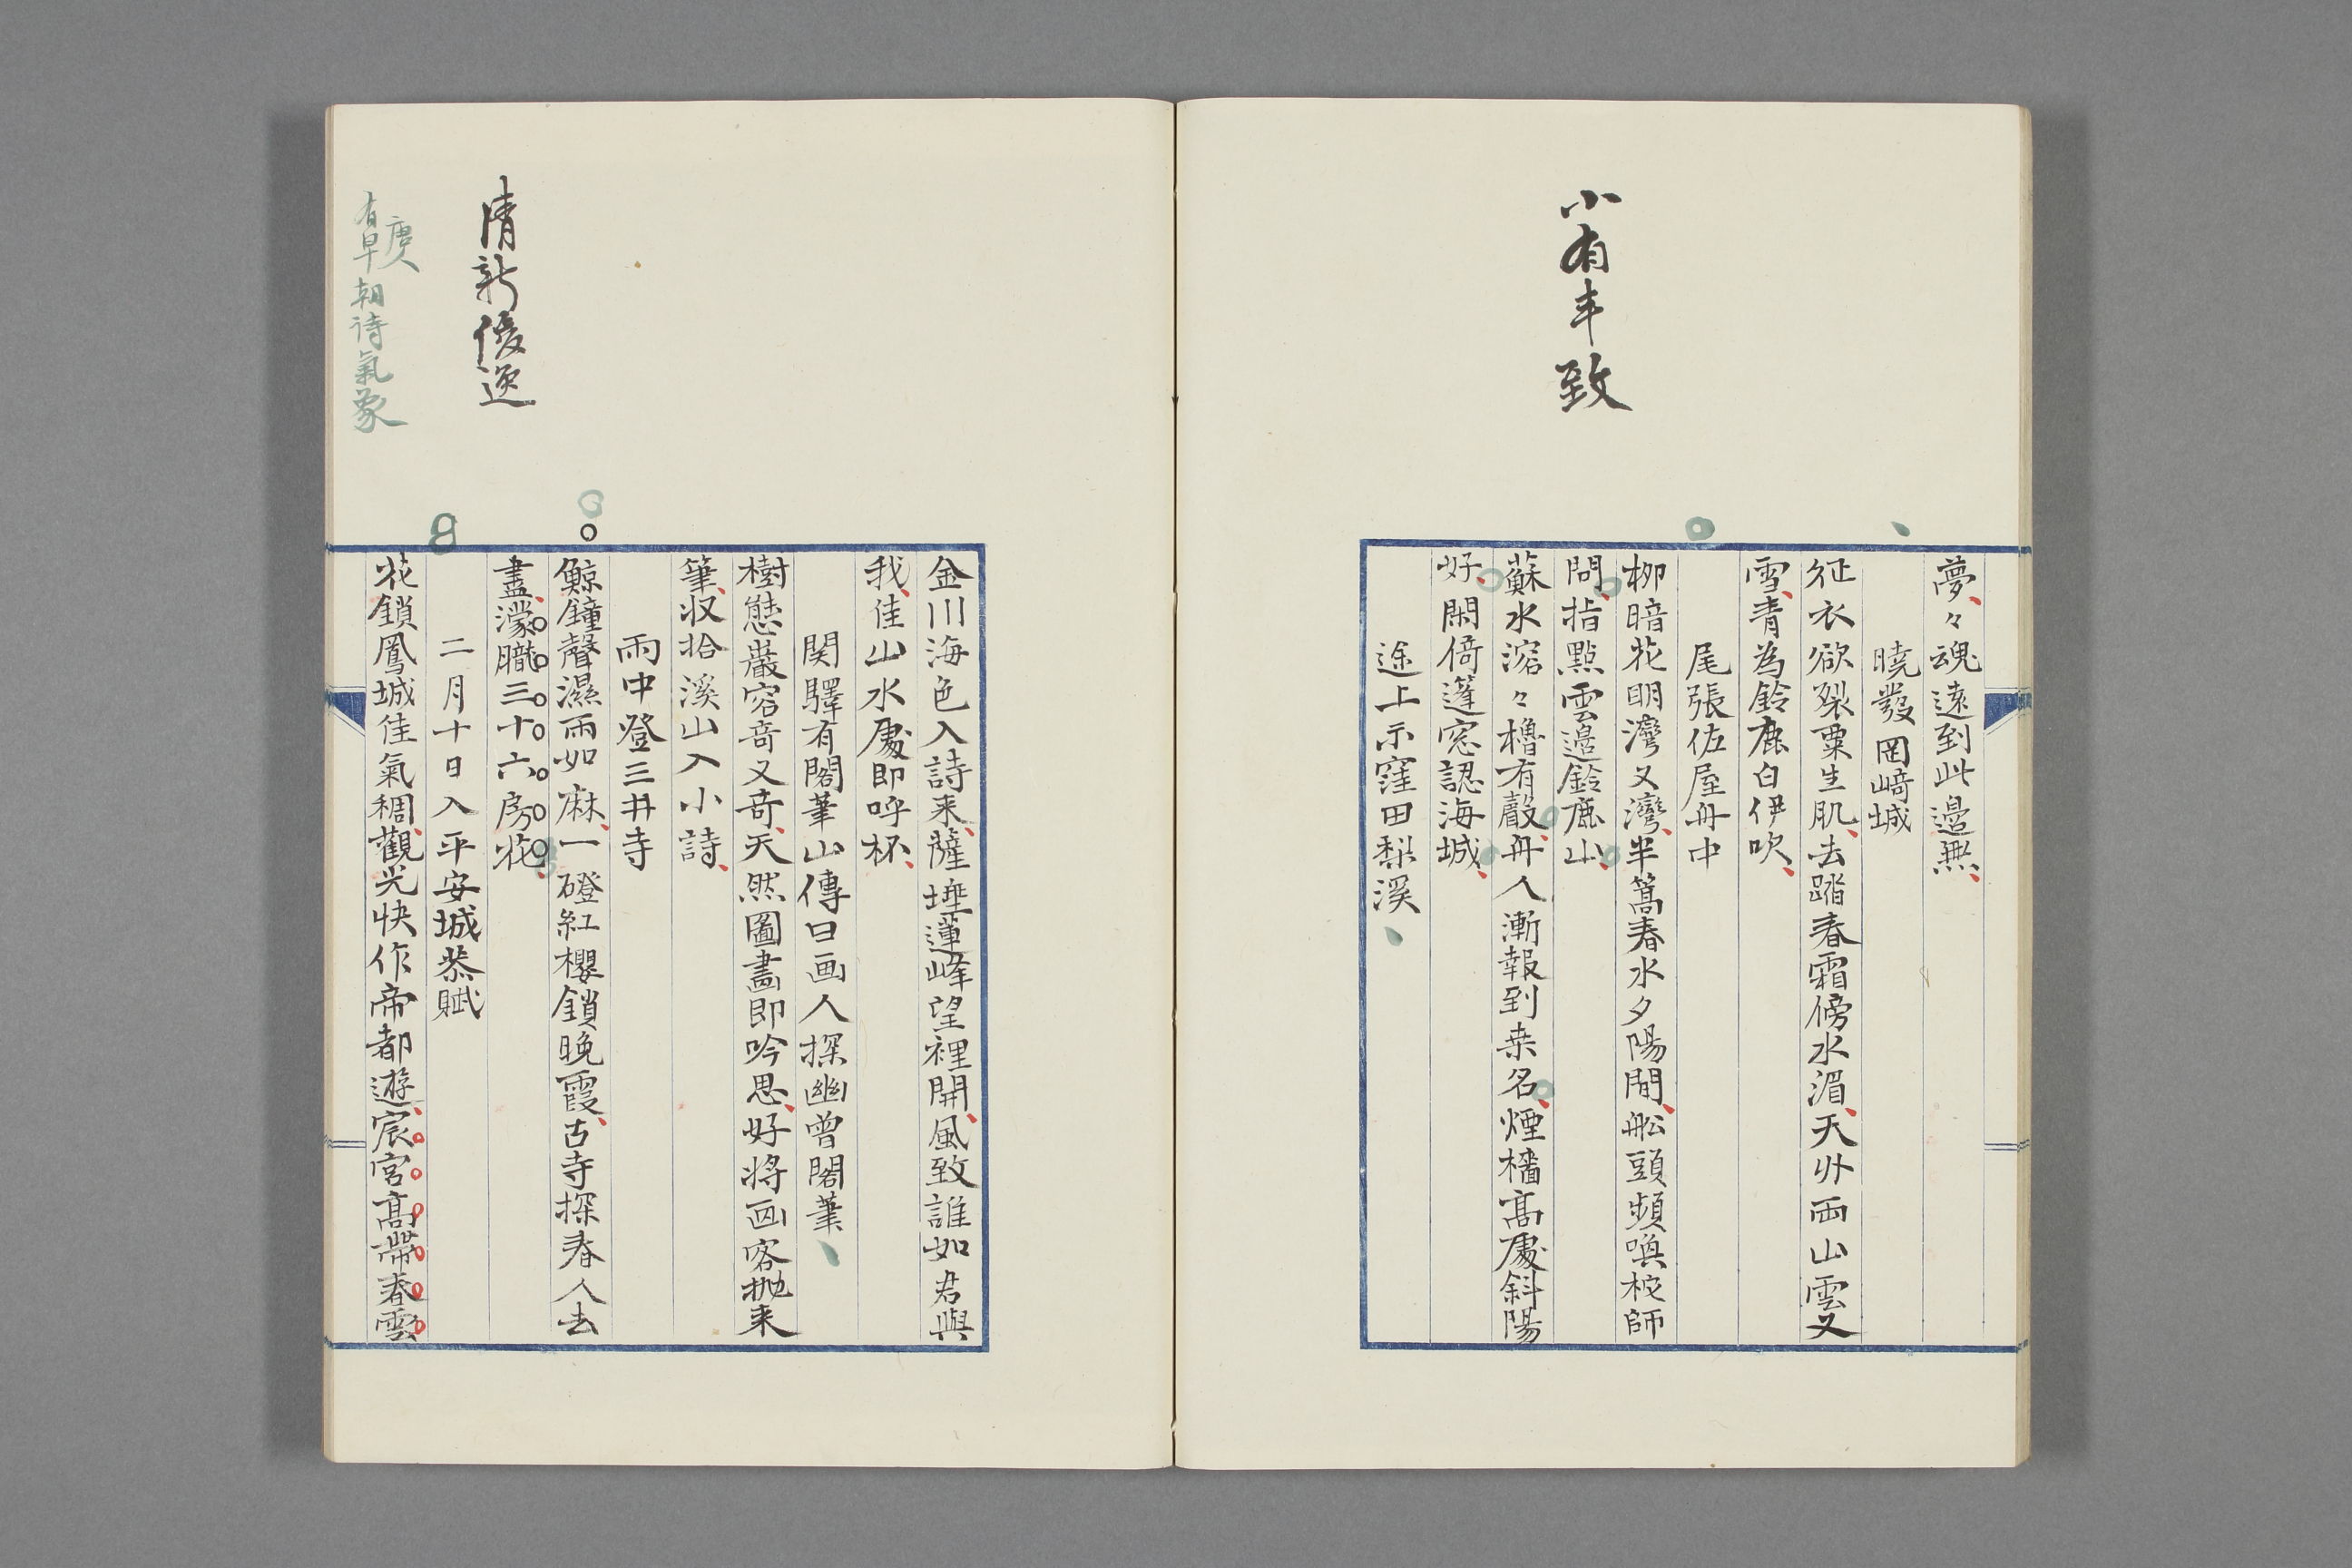 小有丰致
夢々魂遠到此邊無
曉發岡﨑城
征衣欲裂粟生肌去踏春霜傍水湄天外両山雲又
雪青為鈴鹿白伊吹
尾張佐屋舟中
柳暗花明灣又灣半篙春水夕陽間舩頭頻喚柁師
問指點雲邊鈴鹿山
蘇水溶々櫓有聲舟人漸報到桒名煙檣髙處斜陽
好閑倚篷窓認海城
途上示窪田梨溪
清新優逸
唐人
有早朝詩氣象
金川海色入詩来薩埵蓮峰望裡開風致誰如君與
我佳山水處即呼杯
関驛有閣筆山傳曰画人探幽曽閣筆
樹態巌容竒又竒天然圖畫即吟思好将画客抛来
筆収拾溪山入小詩
雨中登三井寺
鯨鐘聲濕雨如麻一磴紅櫻鎖晩霞古寺探春人去
盡濛朧三十六房花
二月十日入平安城恭賦
花鎖鳳城佳氣稠觀光快作帝都遊宸宮髙帶春雲